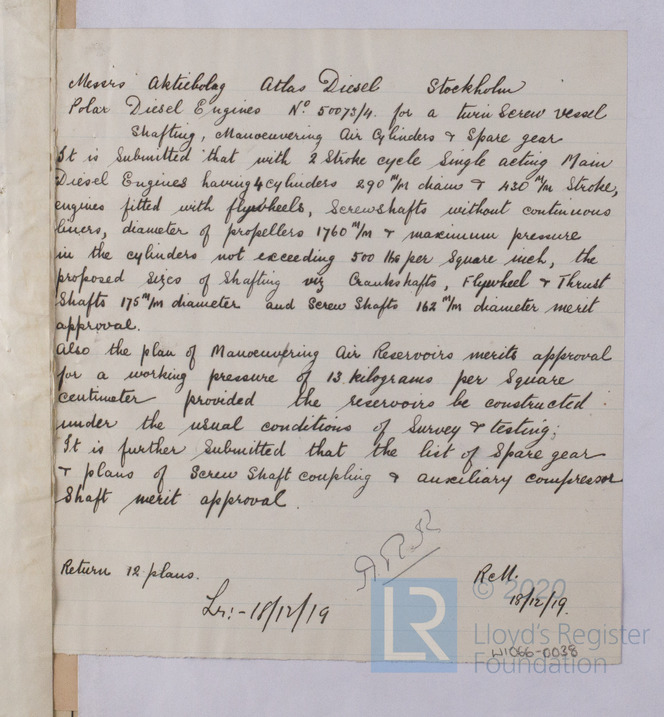 Messrs Aktiebolag Atlas Diesel Stockholm
Polar Diesel Engines No. 50073/4. for a twin Screw vessel
Shafting, Manoeuvering Air Cylinders & Spare gear
It is submitted that with 2 Stroke cycle Single acting Main
Diesel Engines having 4 cylinders 290 m/m diam & 430 m/m Stroke,
engines fitted with flywheels, Screwshafts without continuous
liners, diameter of propellers 1760 m/m & maximum pressure
in the cylinders not exceeding 500 lbs per Square inch, the
proposed sizes of Shafting viz Crankshafts, Flywheel & Thrust
Shafts 175 m/m diameter and Screw Shafts 162 m/m diameter merit
approval.
Also the plan of Manoeuvering Air Reservoirs merits approval
for a working pressure of 13 kilograms per Square
centimeter provided the reservoirs be constructed
under the usual conditions of Survey & testing;
It is further Submitted that the list of Spare gear
& plans of Screw Shaft coupling & auxiliary compressor
Shaft merit approval.
Return 12 plans.
Lr:- 18/12/19
18/12/19.
© 2020
LR
Lloyd's Register
Foundation
W1066-0038